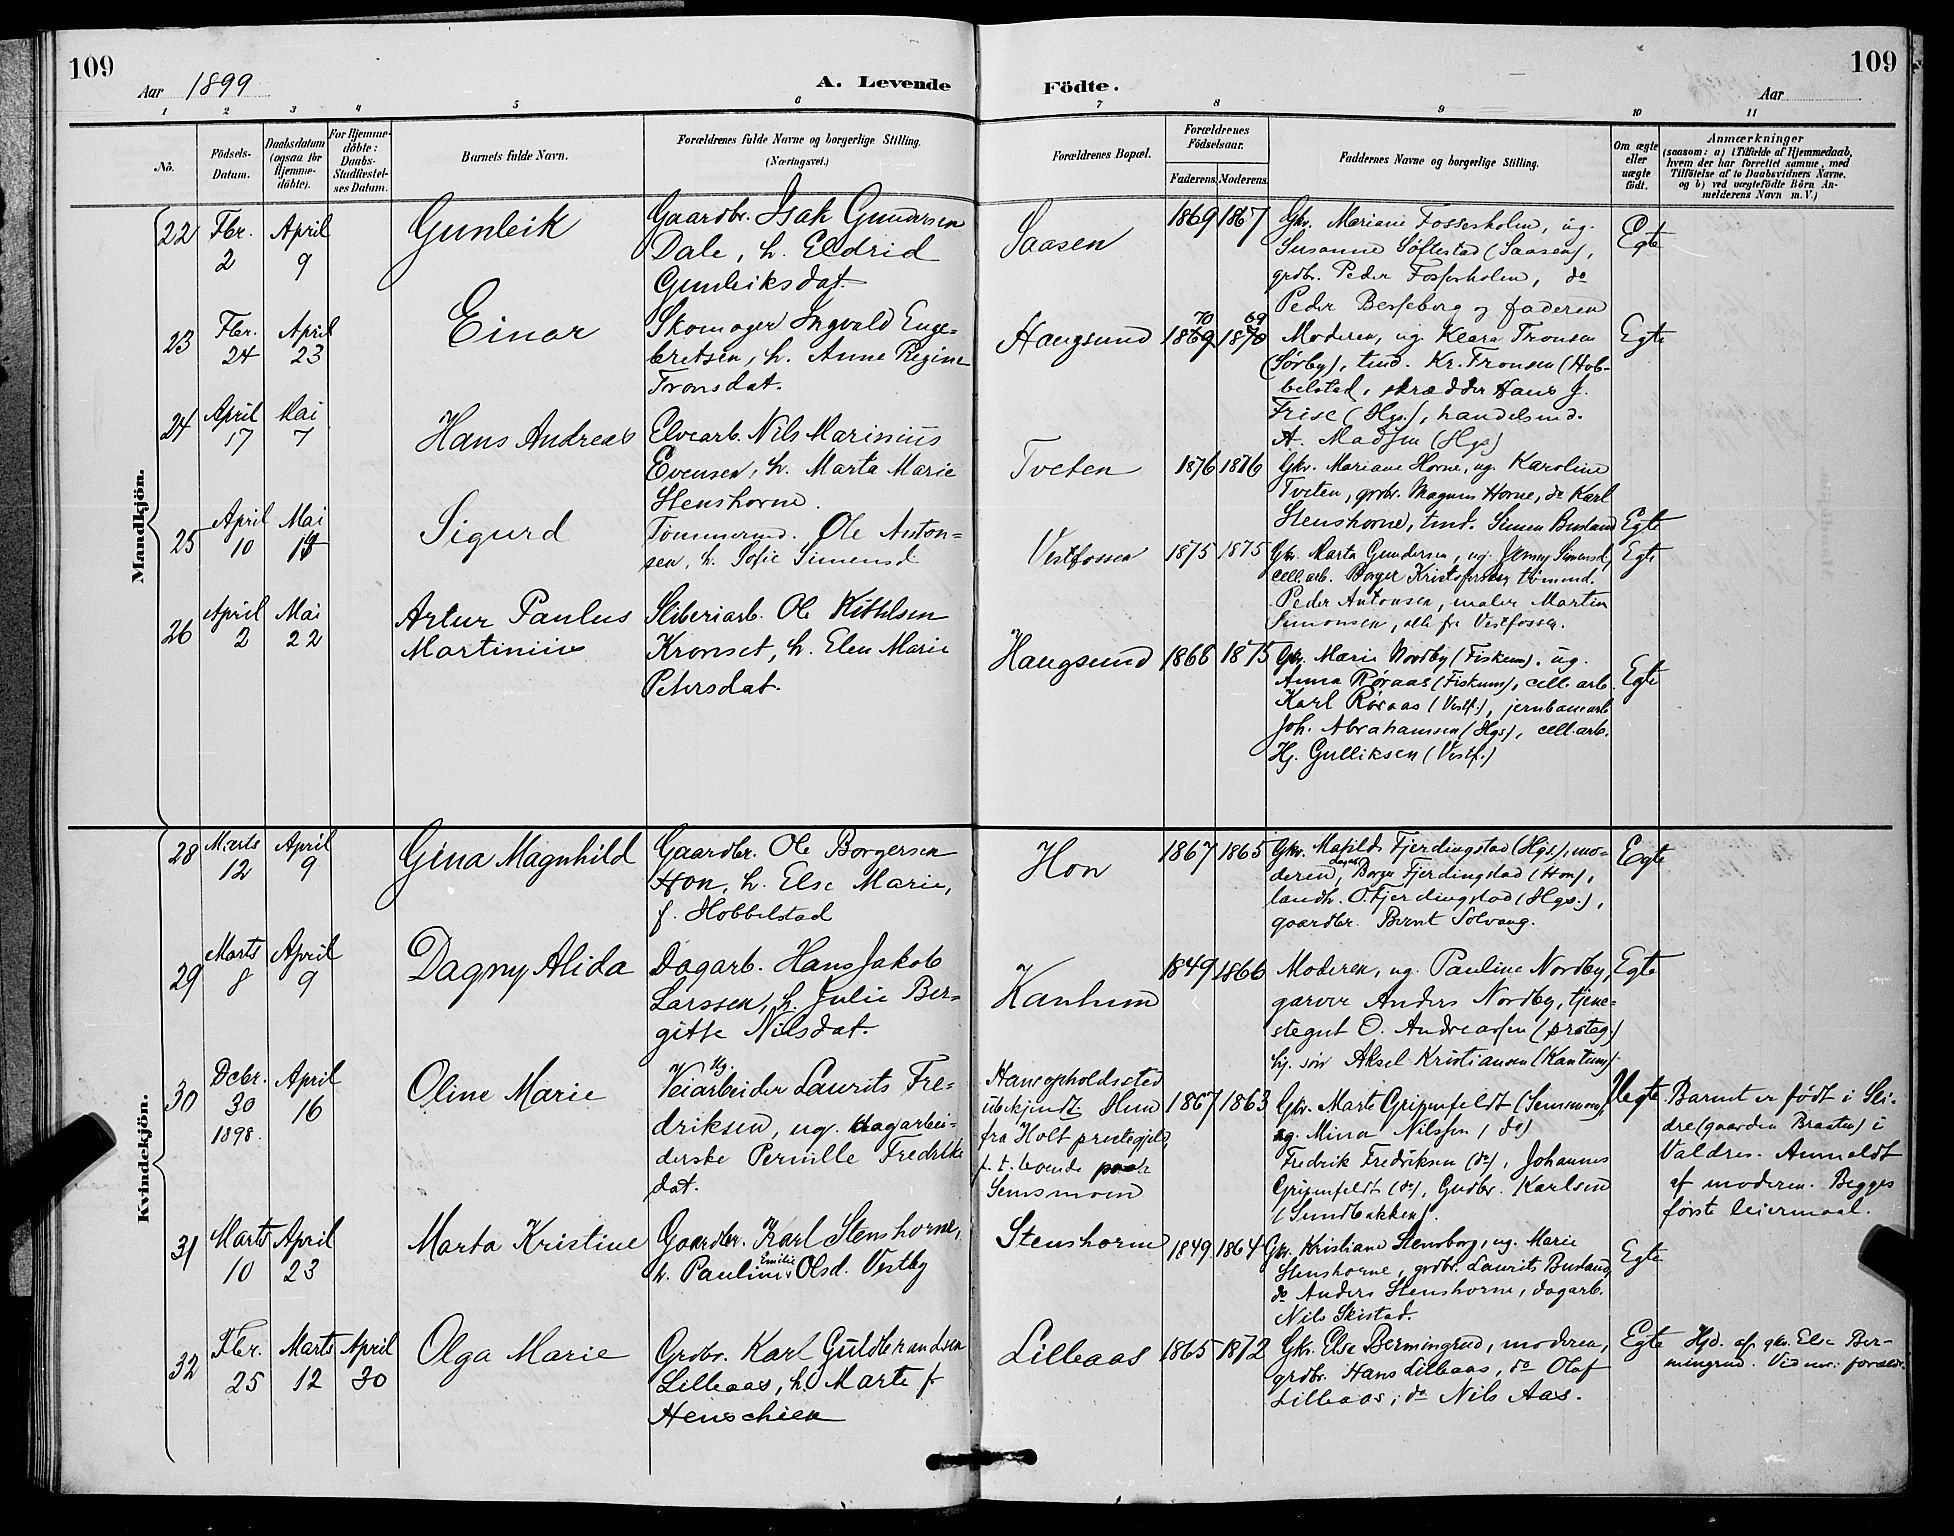 109
Aar 1899
A. Levende
Födte.
Aar
109
1 2 3 4 5 6 7 8 9 10 11
No.
Födsels-
Datum.
Daabsdatum
(ogsaa for
Hjemme-
döbte).
For Hjemme-
döbte:
Daabs-
Stadfæstel-
ses Datum.
Barnets fulde Navn.
Forældrenes fulde Navne og borgerlige Stilling.
(Næringsvei.)
Forældrenes Bopæl.
Forældrenes
Födselsaar.
Faderens. Moderens.
Faddernes Navne og borgerlige Stilling.
Om ægte
eller
uægte
födt.
Anmærkninger
(saasom: a) i Tilfælde af Hjemmedaab,
hvem der har forrettet samme, med
Tilföielse af to Daabsvidners Navne,
og b) ved uægtefödte Börn An-
melderens Navn m. V.)
Mandkjön.
22
Fbr.
2
April
9
Gunleik
Gaardbr. Isak Gundersen
Dale, h. Eldrid
Gunleiksdat.
Saasen
1869 1867
Gkv. Mariane Fossesholm, ug.
Susanne Søftestad (Saasen),
grdbr. Peder Fossesholm, do
Peder Besseberg og faderen
Egte
23
Fbr.
24
April
23
Einar
Skomager Ingvald Enge-
bretsen, h. Anne Regine
Tronsdat.
Haugsund
70 69
1869 1870
Moderen, ug. Klara Tronsen
(Sørby), tmd. Kr. Tronsen (Hob-
belstad, skrædder Hans J.
Frise (Hgs.), handelsmd.
A. Madsen (Hgs)
Egte
24
April
17
Mai
7
Hans Andreas
Elvearb. Nils Marinius
Evensen, h. Marta Marie
Stenshorne.
Tveten
1876 1876
Gkv. Mariane Horne, ug. Karoline
Tveten, grdbr. Magnus Horne, do Karl
Stenshorne, tmd. Simen Busland
Egte
25
April
10
Mai
Sigurd
Tømmermd. Ole Anton-
sen, h. Sofie Simensd
Vestfossen
1875 1875
Gkv. Marta Gundersen, ug. Jenny Simensd,
cell.arb. Borger Kristofersen, tømmd.
Peder Antonsen, maler Martin
Simonsen, alle fr. Vestfossen.
Egte
26
April
2
Mai
22
Artur Paulus
Martinius
Sliberiarb. Ole Kittilsen
Kronset, h. Elen Marie
Petersdat.
Haugsund
1868 1875
Gkv. Marie Nordby (Fiskum), ug.
Anna Røraas (Fiskum), cell. arb.
Karl Røraas (Vestf.), jernbanearb
Joh. Abrahamsen (Hgs), cell.arb.
Hj. Gulliksen (Vestf.)
Egte
Kvindekjön.
28
Marts
12
April
9
Gina Magnhild
Gaardbr. Ole Borgersen
Hon, h. Else Marie,
f. Hobbelstad
Hon
1867 1865
Gkv. Matilds Fjerdingstad (Hgs), mo-
deren, Borger Fjerdingstad (Hon),
landh. O. Fjerdingstad (Hgs.),
gaardbr. Bernt Solvang.
Egte
29
Marts
8
April
9
Dagny Alida
Dagarb. Hans Jakob
Larssen, h. Julie Ber-
gitte Nilsdat.
Kanhum
1849 1866
Moderen, ug. Pauline Nordby,
garver Anders Nordby, tjene-
stegut O. Andreassen (prstag.)
hj. søn Aksel Kristiansen (Kantum)
Egte
30
Dcbr.
30
1898.
April
16
Oline Marie
Ug.
Veiarbeider Laurits Fre-
driksen, ug. dagarbei-
derske Pernille Fredriks
dat.
Hans opholdssted
ubekjendt. Hun
fra Holt prestegjeld,
f. t. boende
Semsmoen
1867 1863
Gkv. Marte Grippenfeldt (Semsmoen),
ug. Mina Nilssen (do)
Fredrik Fredriksen (do), Johannes
Grippenfeldt (do), Gudbr. Karlsen
(Sundbakken).
Uegte
Barnet er født i Sli-
dre (gaarden Brasten) i
Valdres. Anmeldt
af moderen. Begges
første leiermaal.
31
Marts
10
April
23
Marta Kristine
Gaardbr. Karl Stenshorne,
h. Pauline Emilie Olsd. Vestby
Stenshorne
1849 1864
Gkv. Kristiane Stensborg, ug. Marie
Stenshorne, grdbr. Laurits Busland,
do Anders Stenshorne, dagarb.
Nils Skistad.
Egte
32
Fbr.
25
Marts
12
April
30
Olga Marie
Grdbr. Karl Guldbrandsen
Lilleaas, h. Marte f.
Henschien
Lilleaas
1865 1872
Gkv. Else Bermingrud, moderen,
grdbr. Hans Lilleaas, do Olaf
Lilleaas, do Nils Aas.
Egte
Hjd. af gkv. Else Ber-
mingrud. Vidner: forældr.